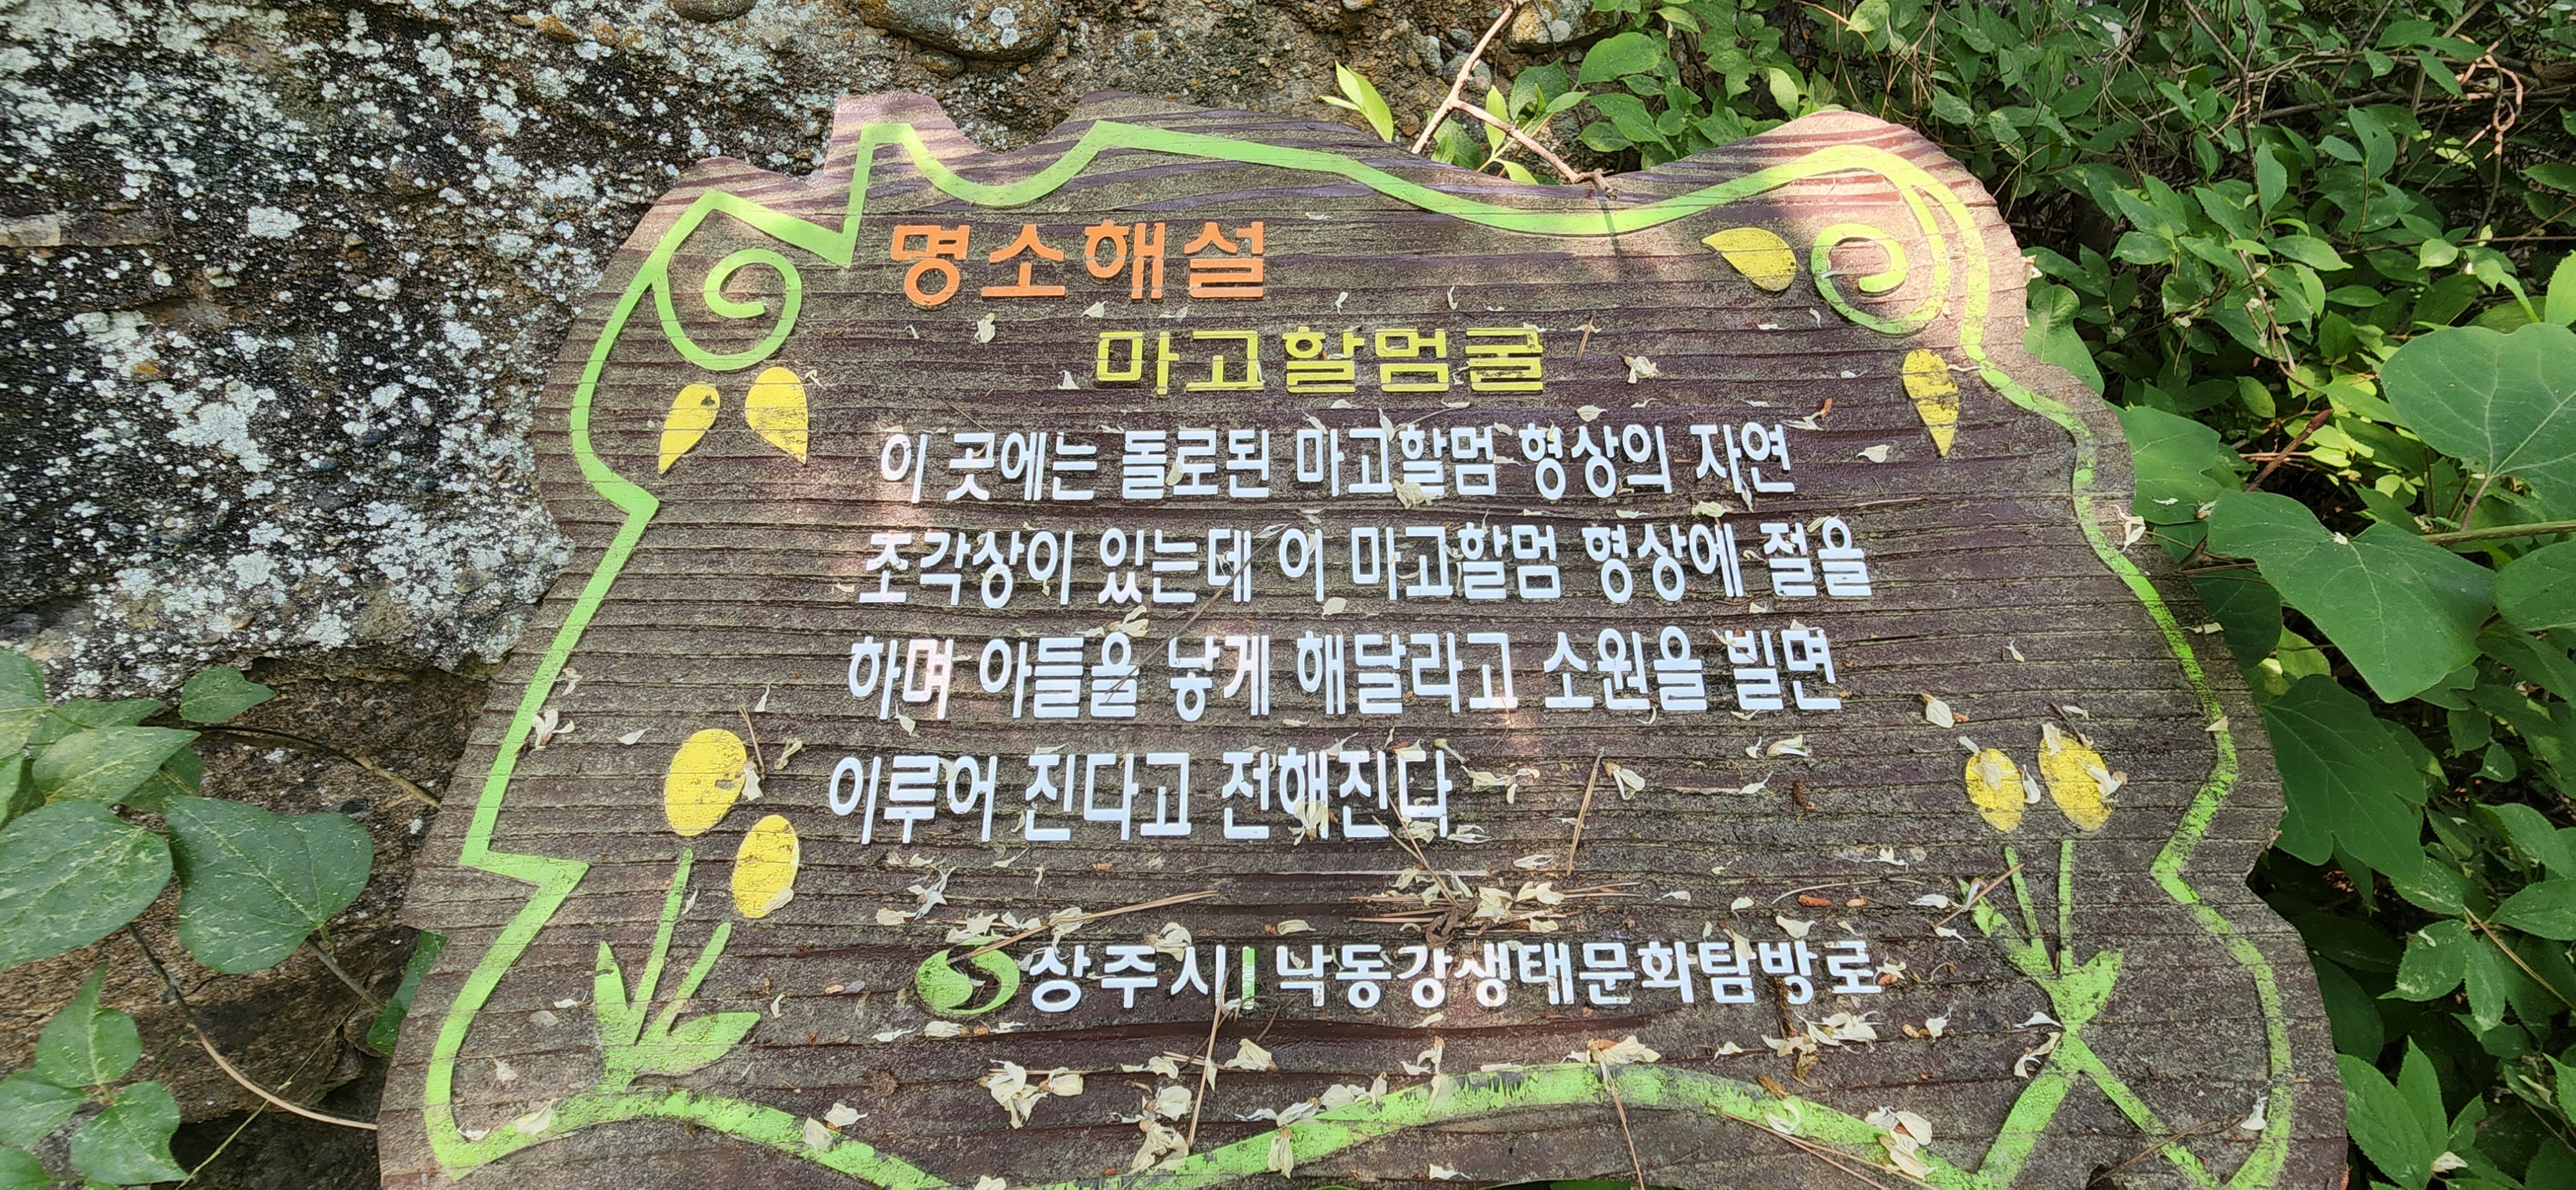 명소해설
마고할멈굴
이 곳에는 돌로된 마고할멈 형상의 자연
조각상이 있는데 이 마고할멈 형상에 절을
하며 아들을 낳게 해달라고 소원을 빌면
이루어 진다고 전해진다
상주시 | 낙동강생태문화탐방로